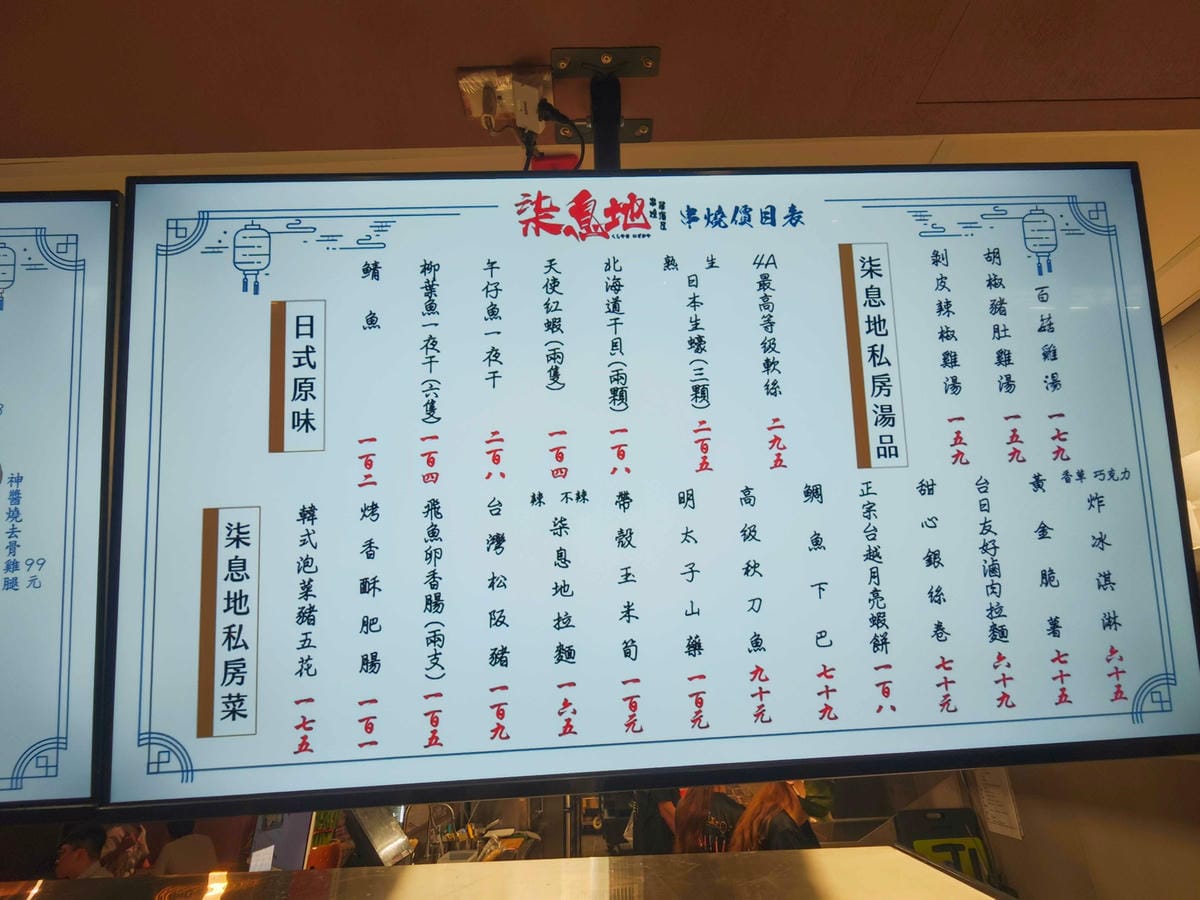 柒息地
串燒
居酒屋
くしやき いざかや
串燒價目表
百菇雞湯 一七九
胡椒豬肚雞湯 一五九
剝皮辣椒雞湯 一五九
柒息地私房湯品
4A最高等級軟絲 二九五
生 熟
日本生蠔(三顆) 二百五
北海道干貝(兩顆) 一百八
天使紅蝦(兩隻) 一百四
午仔魚一夜干 二百八
柳葉魚一夜干(六隻) 一百四
鯖魚 一百二
日式原味
香草 巧克力
炸冰淇淋 六十五
黃金脆薯 七十五
台日友好滷肉拉麵 六十九
甜心銀絲卷 七十元
正宗台越月亮蝦餅 一百八
鯛魚下巴 七十九
高級秋刀魚 九十元
明太子山藥 一百元
帶殼玉米筍 一百元
不辣 辣
柒息地拉麵 一六五
台灣松阪豬 一百九
飛魚卵香腸(兩支) 一百五
烤香酥肥腸 一百一
韓式泡菜豬五花 一七五
柒息地私房菜
神醬燒去骨雞腿 99元